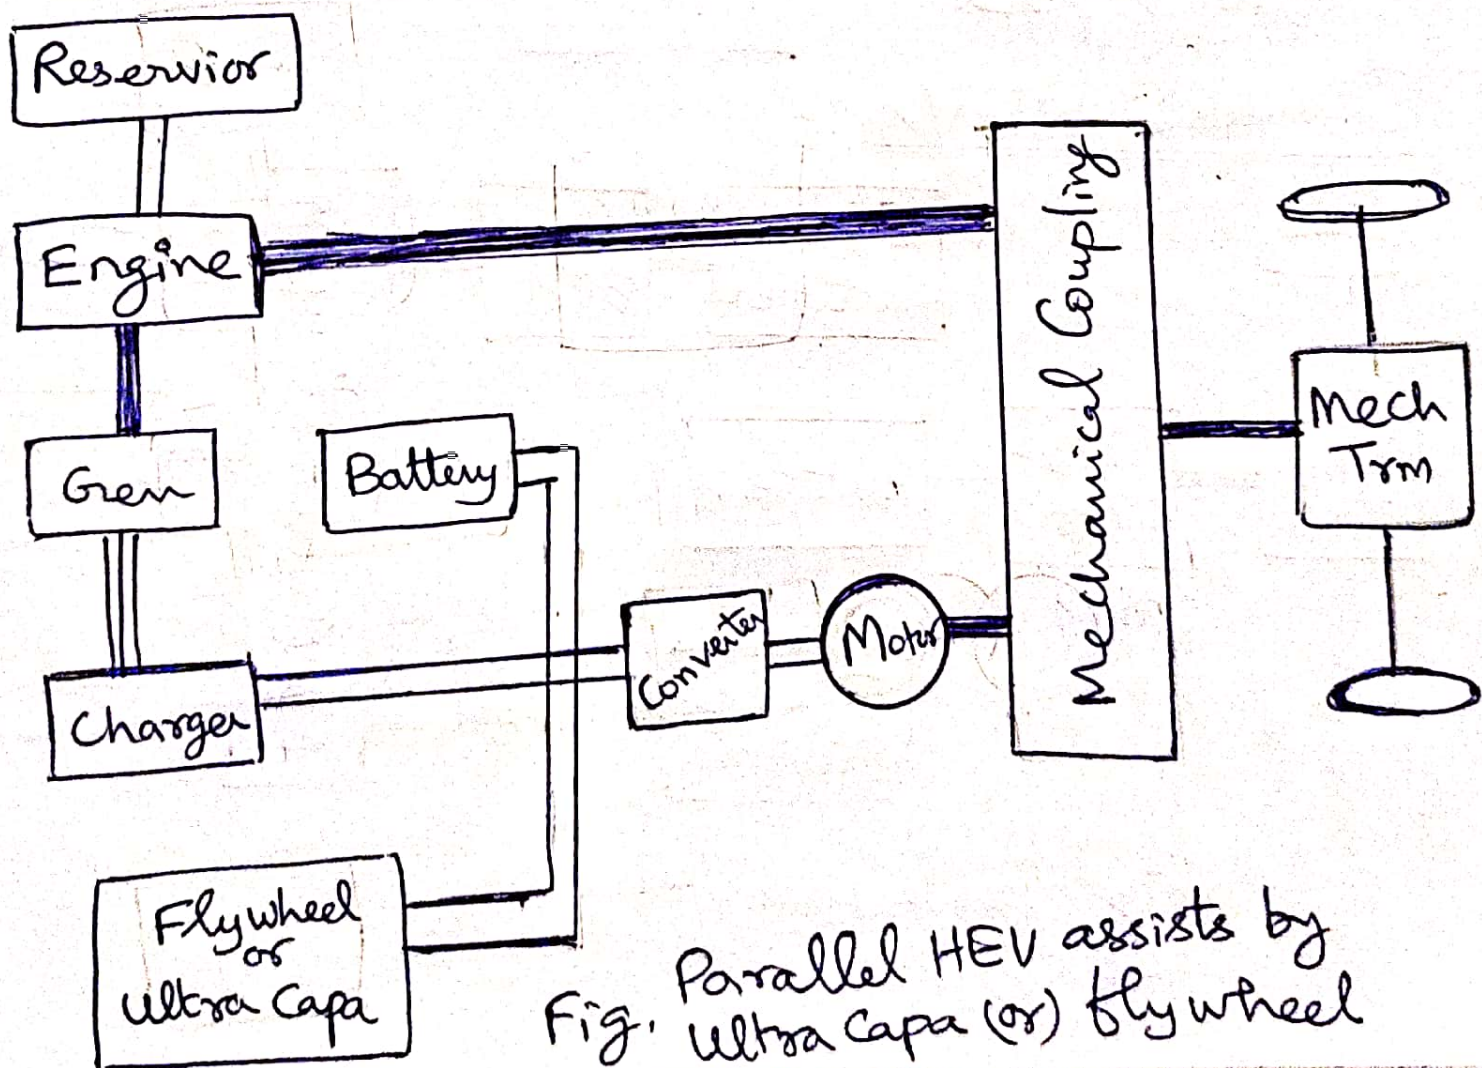 Reservior
Engine
Gen
Battery
Charger
Converter
Motor
Mechanical Coupling
Mech
Trm
Flywheel
or
Ultra Capa
Fig. Parallel HEV assists by
Ultra Capa (or) flywheel